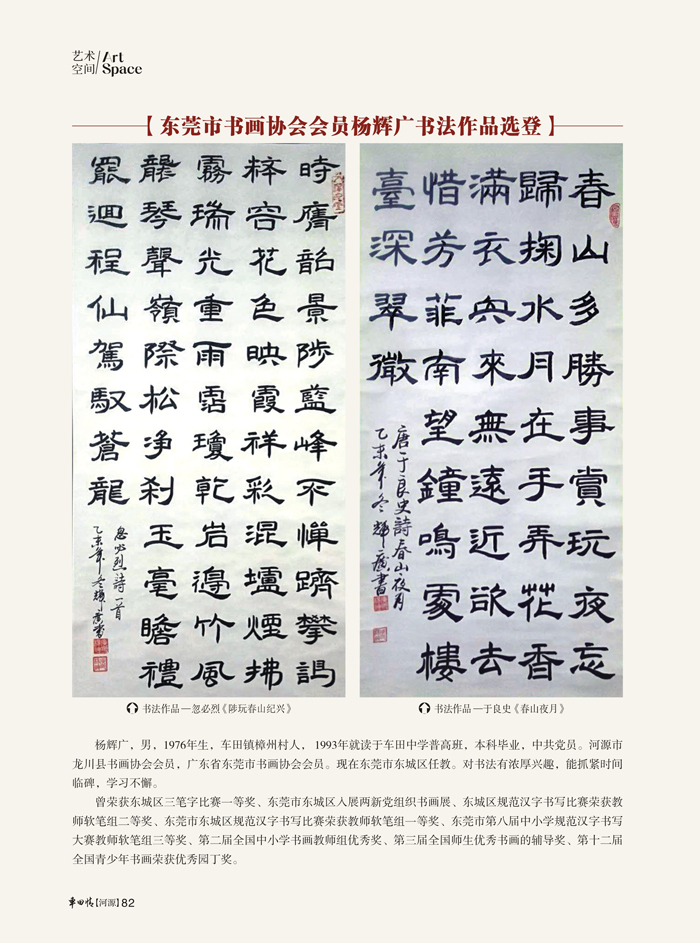 艺术
空间
Art
Space
【东莞市书画协会会员杨辉广书法作品选登】
時膺韶景陟蘭峰不憚躋攀謁
粹容花色映霞祥彩混壚煙拂
霧瑞光重雨霑瓊乾岩邊竹風
龤琴聲嶺際松净刹玉毫瞻禮
罷迴程仙駕馭蒼龍
忽必烈詩一首
乙未年冬輝廣書
春山多勝事賞玩夜忘
歸掬水月在手弄花香
滿衣興來無遠近欲去
惜芳菲南望鐘鳴處樓
臺深翠微
唐于良史詩春山夜月
乙未年冬輝廣書
书法作品—忽必烈《陟玩春山纪兴》
书法作品—于良史《春山夜月》
杨辉广，男，1976年生，车田镇樟州村人， 1993年就读于车田中学普高班，本科毕业，中共党员。河源市
龙川县书画协会会员，广东省东莞市书画协会会员。现在东莞市东城区任教。对书法有浓厚兴趣，能抓紧时间
临碑，学习不懈。
曾荣获东城区三笔字比赛一等奖、东莞市东城区入展两新党组织书画展、东城区规范汉字书写比赛荣获教
师软笔组二等奖、东莞市东城区规范汉字书写比赛荣获教师软笔组一等奖、东莞市第八届中小学规范汉字书写
大赛教师软笔组三等奖、第二届全国中小学书画教师组优秀奖、第三届全国师生优秀书画的辅导奖、第十二届
全国青少年书画荣获优秀园丁奖。
车田情【河源】82